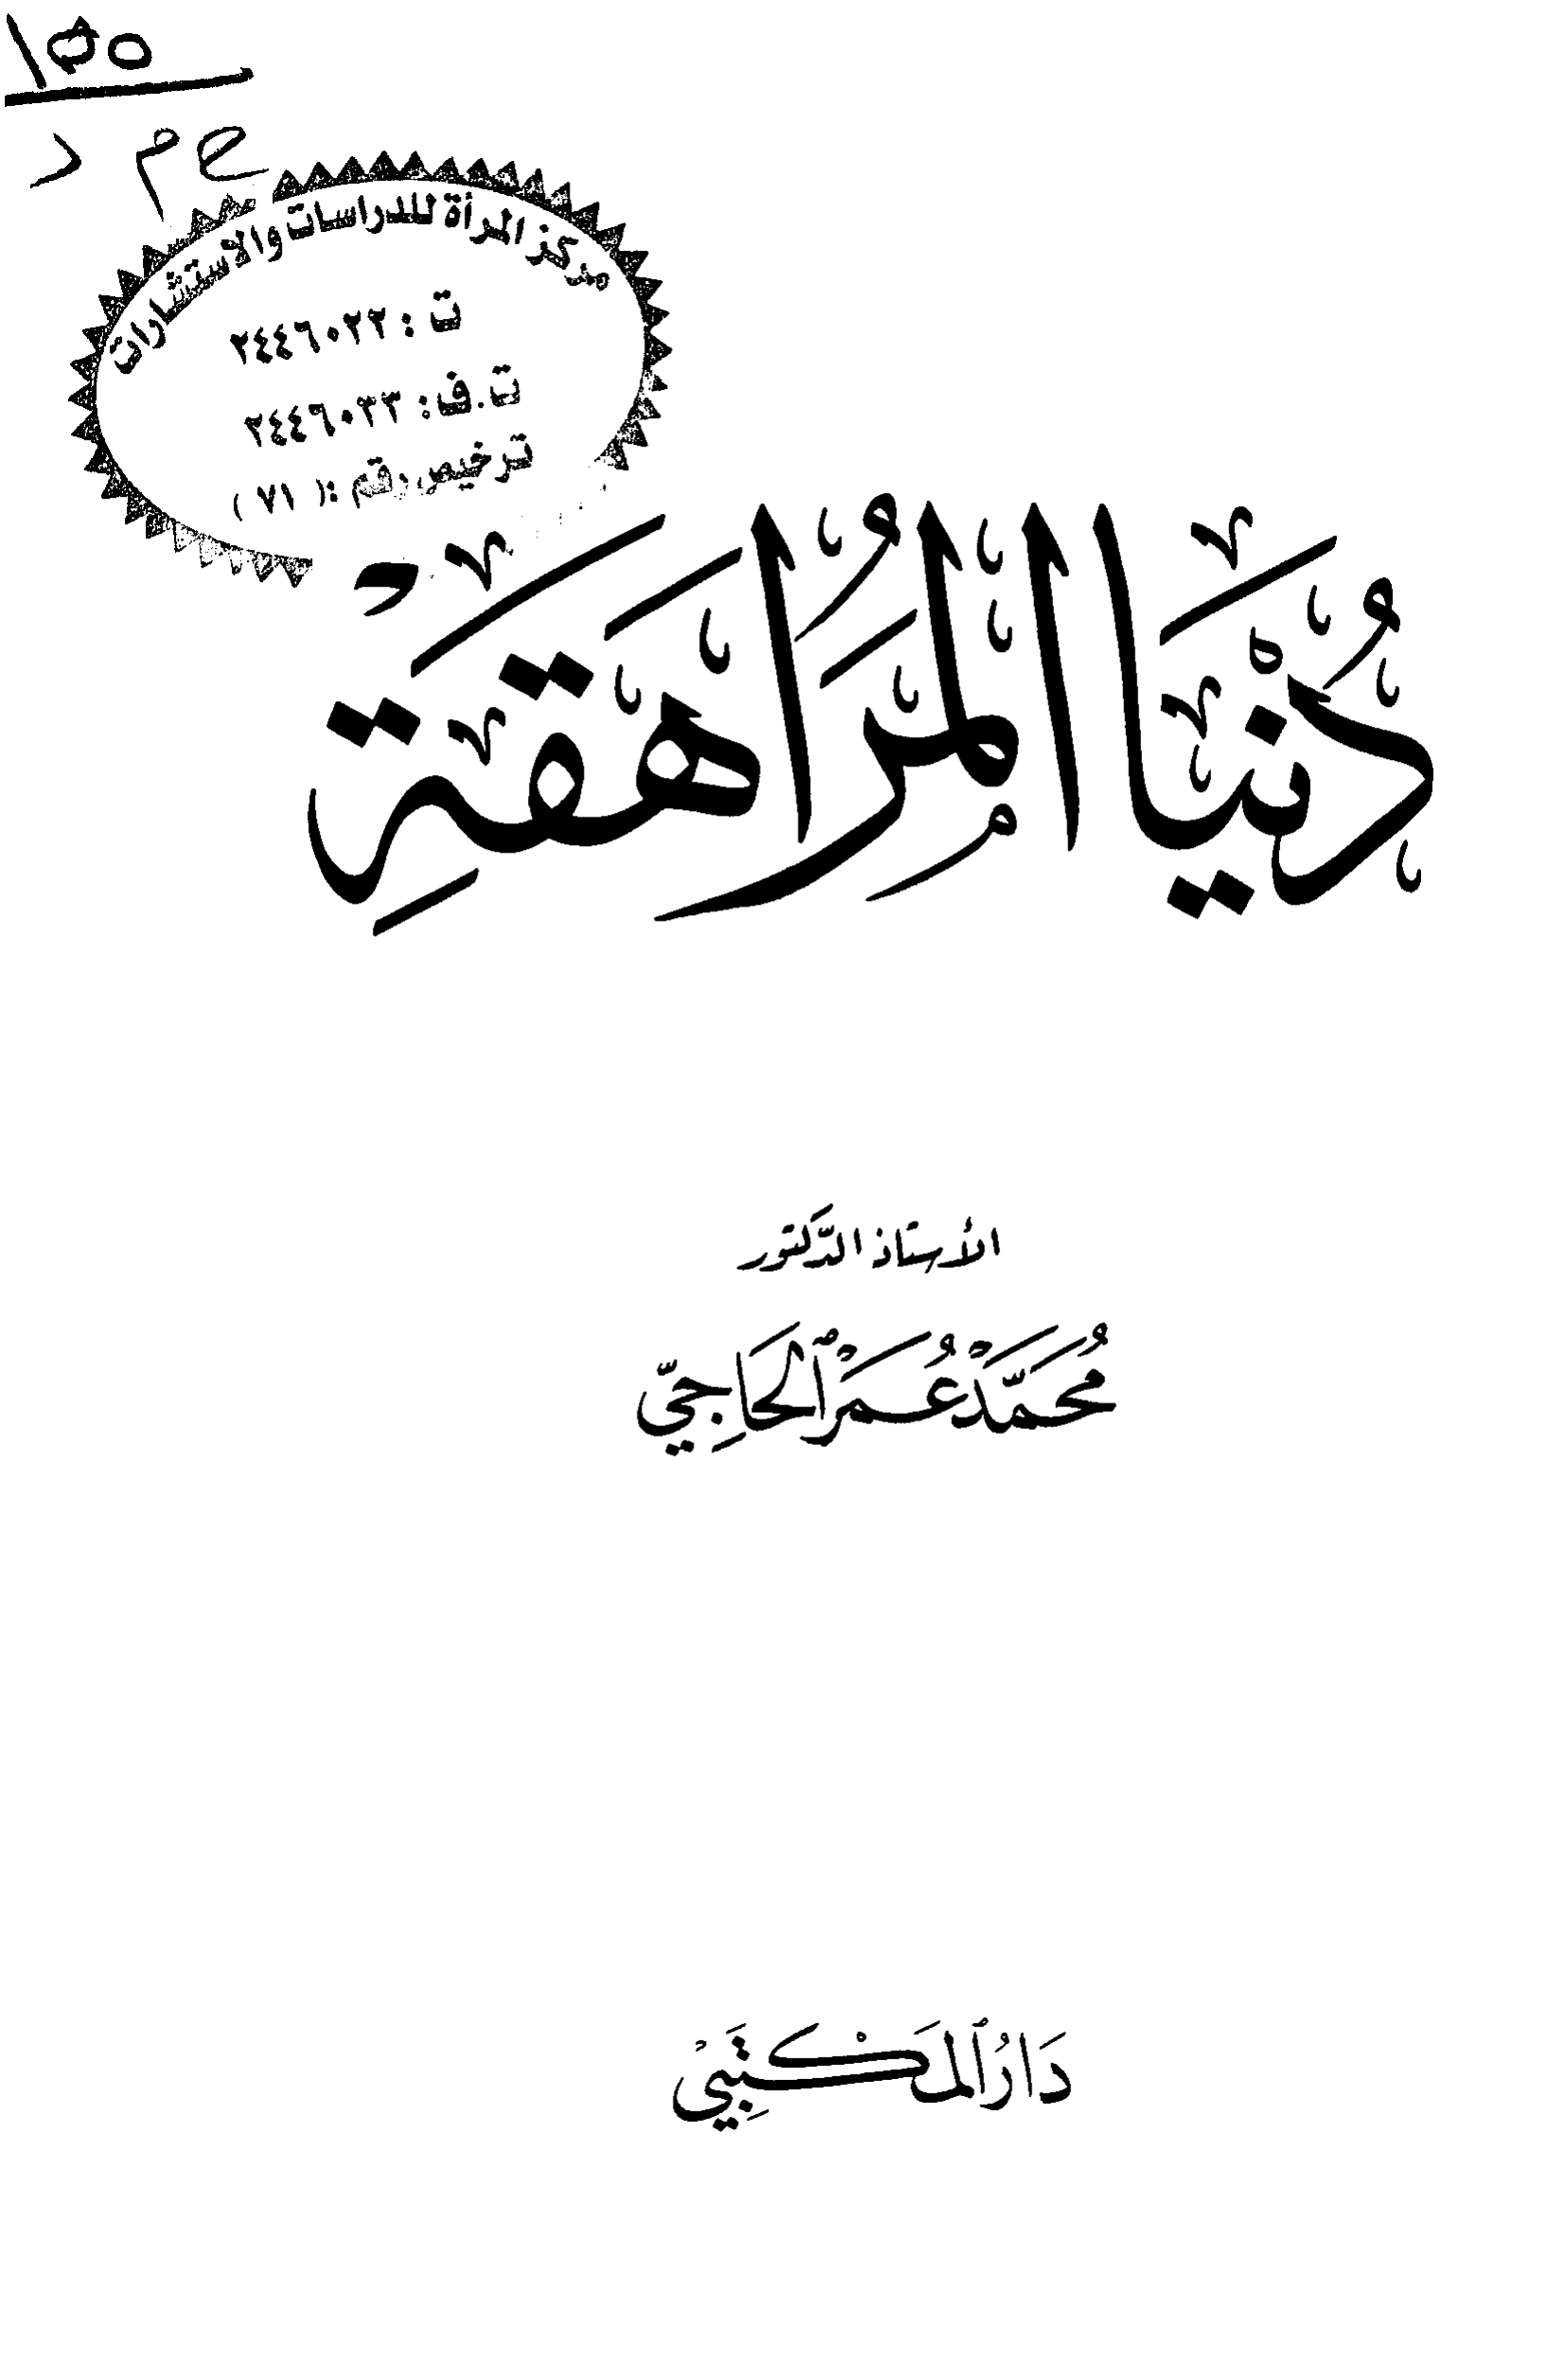 ١٥٥
ح م د
مركز المرأة للدراسات والاستشارات
ت : ٢٤٤٦٠٢٢
ت.ف: ٢٤٤٦٠٣٣
ترخيص رقم : ( ٧١ )
دُنْيَا الْمُرَاهَقَةِ
الأستاذ الدَّكتور
مُحَمَّدْ عُمَرْ ٱلحَاجِيّ
دَارُ ٱلمَكْتَبِيْ